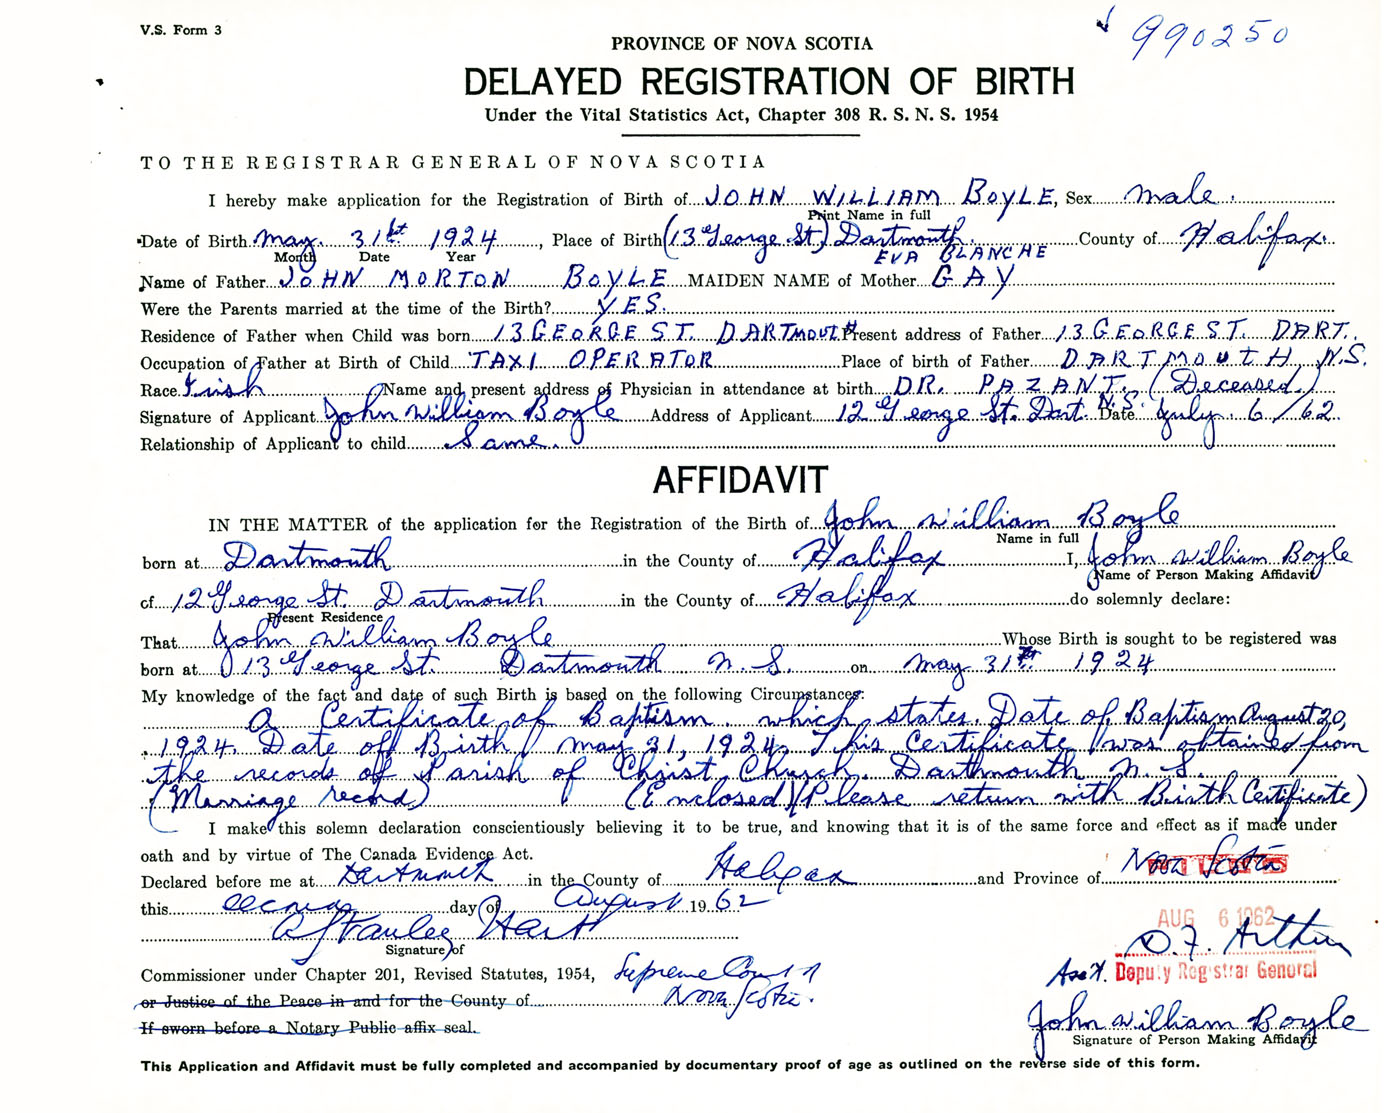 V.S. Form 3
990250
PROVINCE OF NOVA SCOTIA
DELAYED REGISTRATION OF BIRTH
Under the Vital Statistics Act, Chapter 308 R. S. N. S. 1954
TO THE REGISTRAR GENERAL OF NOVA SCOTIA
I hereby make application for the Registration of Birth of JOHN WILLIAM BOYLE, Sex male.
Print Name in full
Date of Birth May. 31st 1924, Place of Birth (13 George St.) Dartmouth. County of Halifax.
Month Date Year EVA BLANCHE
Name of Father JOHN MORTON BOYLE MAIDEN NAME of Mother GAY
Were the Parents married at the time of the Birth? YES.
Residence of Father when Child was born 13 GEORGE ST. DARTMOUTH Present address of Father 13 GEORGE ST. DART.
Occupation of Father at Birth of Child TAXI OPERATOR Place of birth of Father DARTMOUTH N.S.
Race Irish Name and present address of Physician in attendance at birth DR. PAZANT. (Deceased)
Signature of Applicant John William Boyle Address of Applicant 12 George St. Dart. N.S. Date July 6/62
Relationship of Applicant to child Same.
AFFIDAVIT
IN THE MATTER of the application for the Registration of the Birth of John William Boyle
Name in full
born at Dartmouth in the County of Halifax I, John William Boyle
Name of Person Making Affidavit
of 12 George St. Dartmouth in the County of Halifax do solemnly declare:
Present Residence
That John William Boyle Whose Birth is sought to be registered was
born at 13 George St. Dartmouth N.S. on May 31st 1924
My knowledge of the fact and date of such Birth is based on the following Circumstances:
A Certificate of Baptism. which states. Date of Baptism August 20,
1924. Date of Birth May 31, 1924. This Certificate was obtained from
the records of Parish of Christ Church. Dartmouth N.S.
(Marriage record) (Enclosed) (Please return with Birth Certificate)
I make this solemn declaration conscientiously believing it to be true, and knowing that it is of the same force and effect as if made under
oath and by virtue of The Canada Evidence Act.
Declared before me at Dartmouth in the County of Halifax and Province of Nova Scotia
this second day of August 1962
AUG 6 1962
A Stanley Hart
D.F. Arthur
Signature of
Commissioner under Chapter 201, Revised Statutes, 1954, Supreme Court
Ass't. Deputy Registrar General
or Justice of the Peace in and for the County of Nova Scotia.
John William Boyle
If sworn before a Notary Public affix seal.
Signature of Person Making Affidavit
This Application and Affidavit must be fully completed and accompanied by documentary proof of age as outlined on the reverse side of this form.